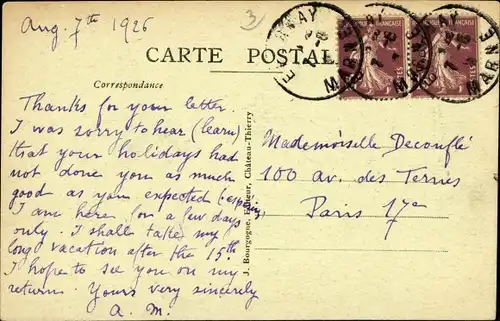 Aug. 7th 1926
3
CARTE POSTALE
EPERNAY
MARNE
Correspondance
Thanks for your letter.
I was sorry to hear (learn)
that your holidays had
not done you as much
good as you expected
I am here for a few days
only. I shall take my
long vacation after the 15th.
I hope to see you on my
return. Yours very sincerely
A. M.
J. Bourgogne, Editeur, Château-Thierry
Mademoiselle Decouflé
100 av. des Ternes
Paris 17e